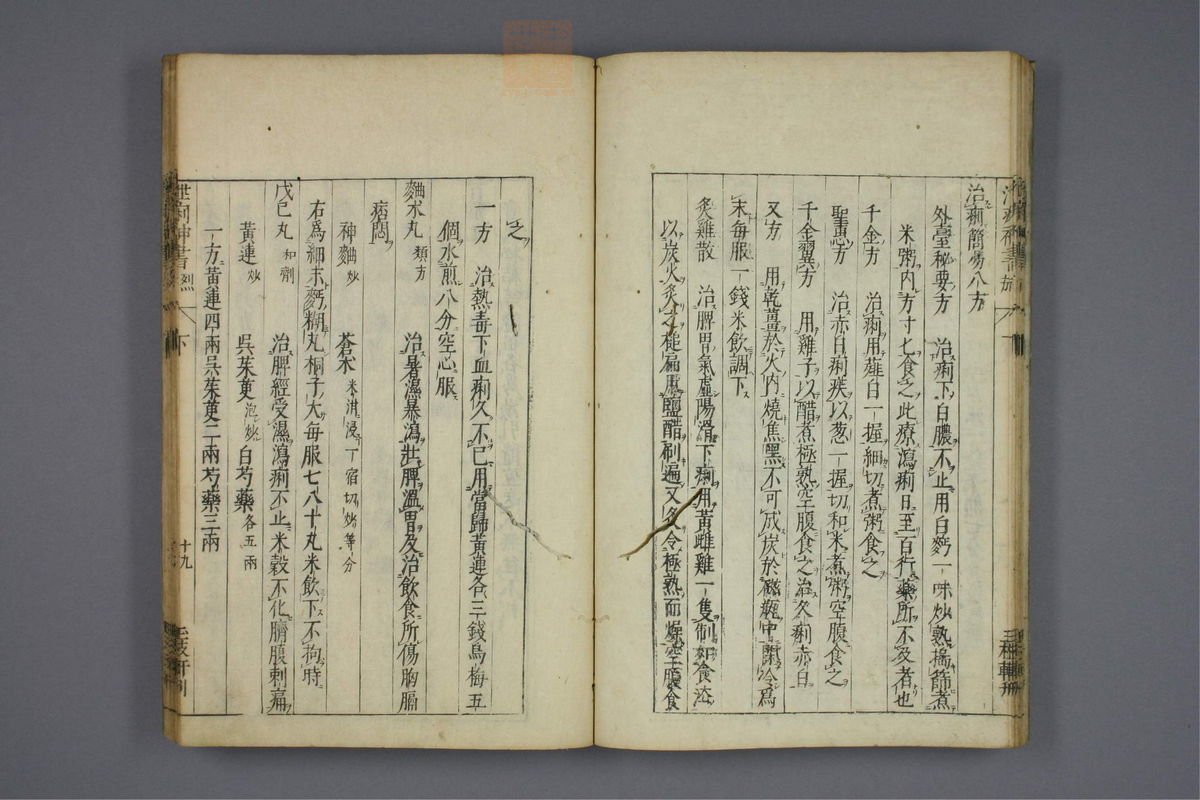 治痢簡易八方
外臺秘要方 治痢下白膿不止用白麪一味炒熟搗篩煮
米粥内方寸匕食之此療瀉痢日至百行藥所不及者也
千金方 治痢用薤白一握細切煮粥食之
聖惠方 治赤白痢疾以葱一握切和米煮粥空腹食之
千金翼方 用雞子以醋煮極熟空腹食之治久痢赤白
又方 用乾薑於火内燒焦黑不可成炭於磁瓶中閉冷爲
末每服一錢米飲調下
炙雞散 治脾胃氣虚陽滑下痢用黃雌雞一隻制如食法
以炭火炙之槌扁用鹽醋刷遍又炙令極熟而燥空腹食
之
一方 治熱毒下血痢久不已用當歸黃連各三錢烏梅五
個水煎八分空心服
麯朮丸 類方 治暑濕暴瀉壯脾溫胃及治飲食所傷胸膈
痞悶
神麯炒 蒼朮米泔浸一宿切炒等分
右爲細末麪糊丸桐子大每服七八十丸米飲下不拘時
戊巳丸 和劑 治脾經受濕瀉痢不止米穀不化臍腹刺痛
黃連炒 吳茱萸泡炒 白芍藥各五兩
一方黃連四兩吳茱萸二兩芍藥三兩
十九